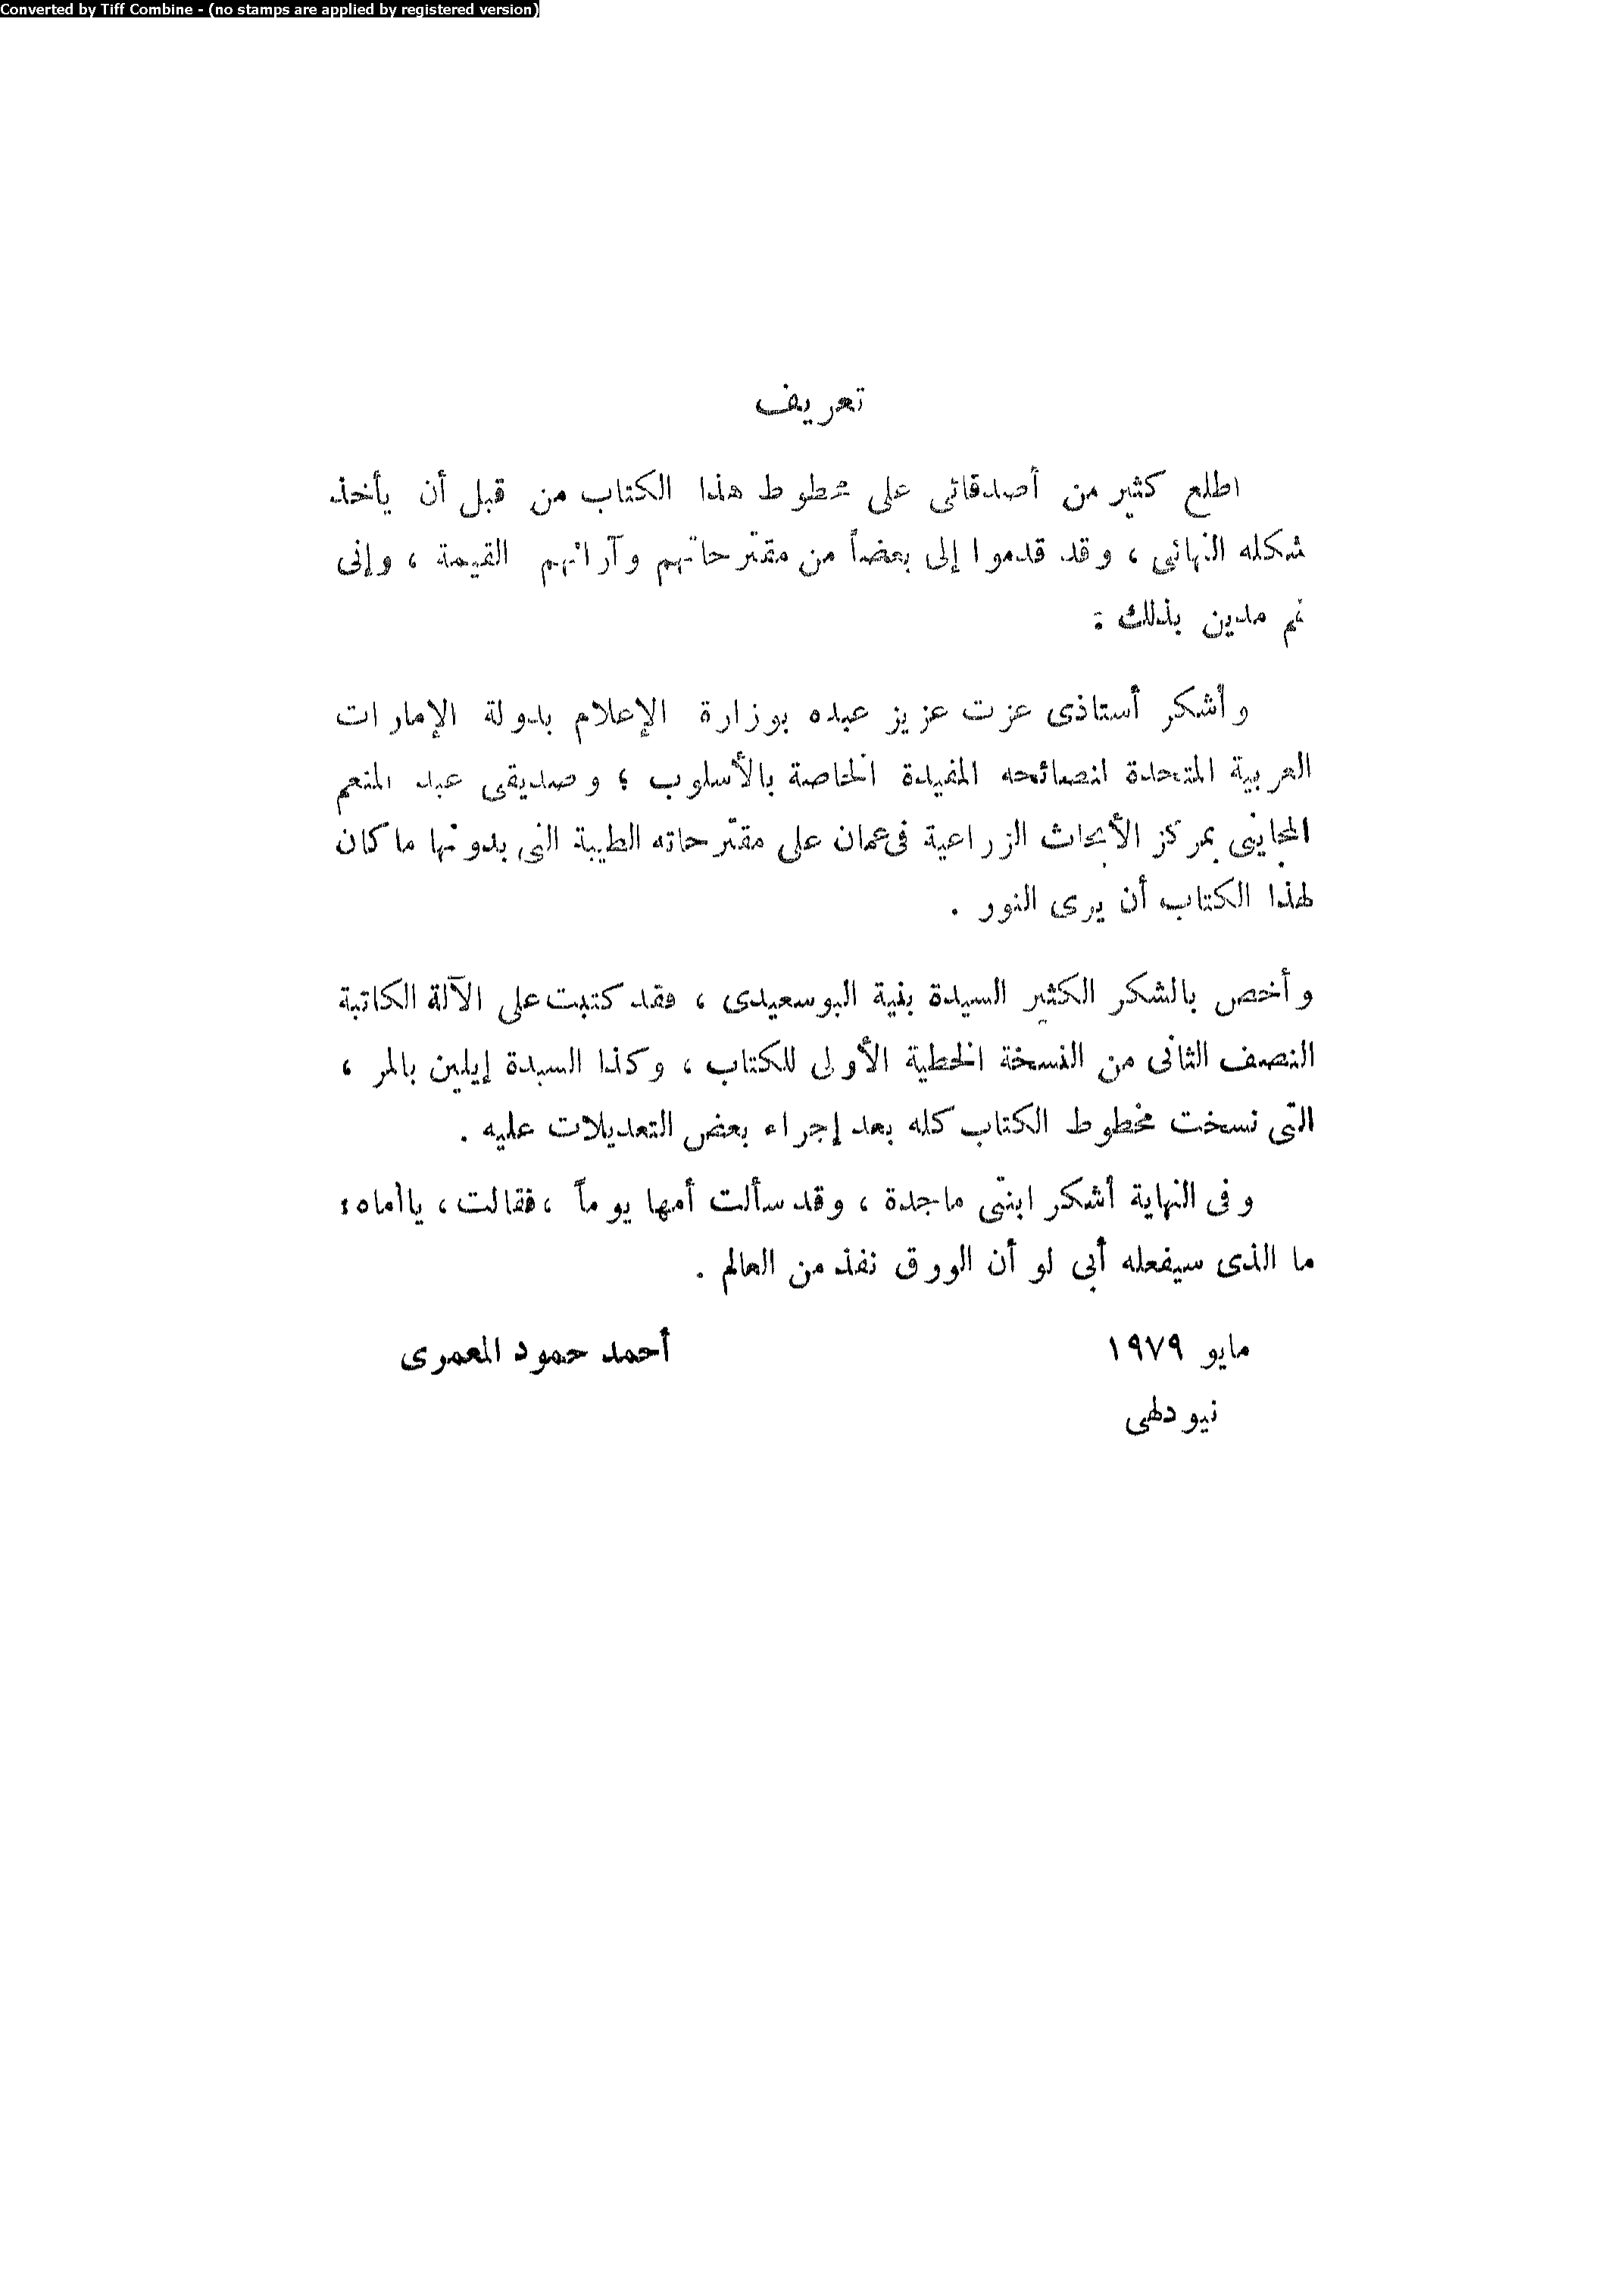 Converted by Tiff Combine - (no stamps are applied by registered version)
تعريف
اطلع كثير من أصدقائى على مخطوط هذا الكتاب من قبل أن يأخذ
شكله النهائى ، وقد قدموا إلى بعضاً من مقترحاتهم وآرائهم القيمة ، وإنى
لهم مدين بذلك :
وأشكر أستاذى عزت عزيز عبده بوزارة الإعلام بدولة الإمارات
العربية المتحدة لنصائحه المفيدة الخاصة بالأسلوب ؛ وصديقى عبد المنعم
المجاينى بمركز الأبحاث الزراعية فى عمان على مقترحاته الطيبة التى بدونها ما كان
لهذا الكتاب أن يرى النور .
وأخص بالشكر الكثير السيدة بنية البوسعيدى ، فقد كتبت على الآلة الكاتبة
النصف الثانى من النسخة الخطية الأولى للكتاب ، وكذا السيدة إيلين بالمر ،
التى نسخت مخطوط الكتاب كله بعد إجراء بعض التعديلات عليه .
وفى النهاية أشكر ابنتى ماجدة ، وقد سألت أمها يوماً ، فقالت ، ياأماه :
ما الذى سيفعله أبى لو أن الورق نفذ من العالم .
مايو ١٩٧٩ أحمد حمود المعمرى
نيو دلهى